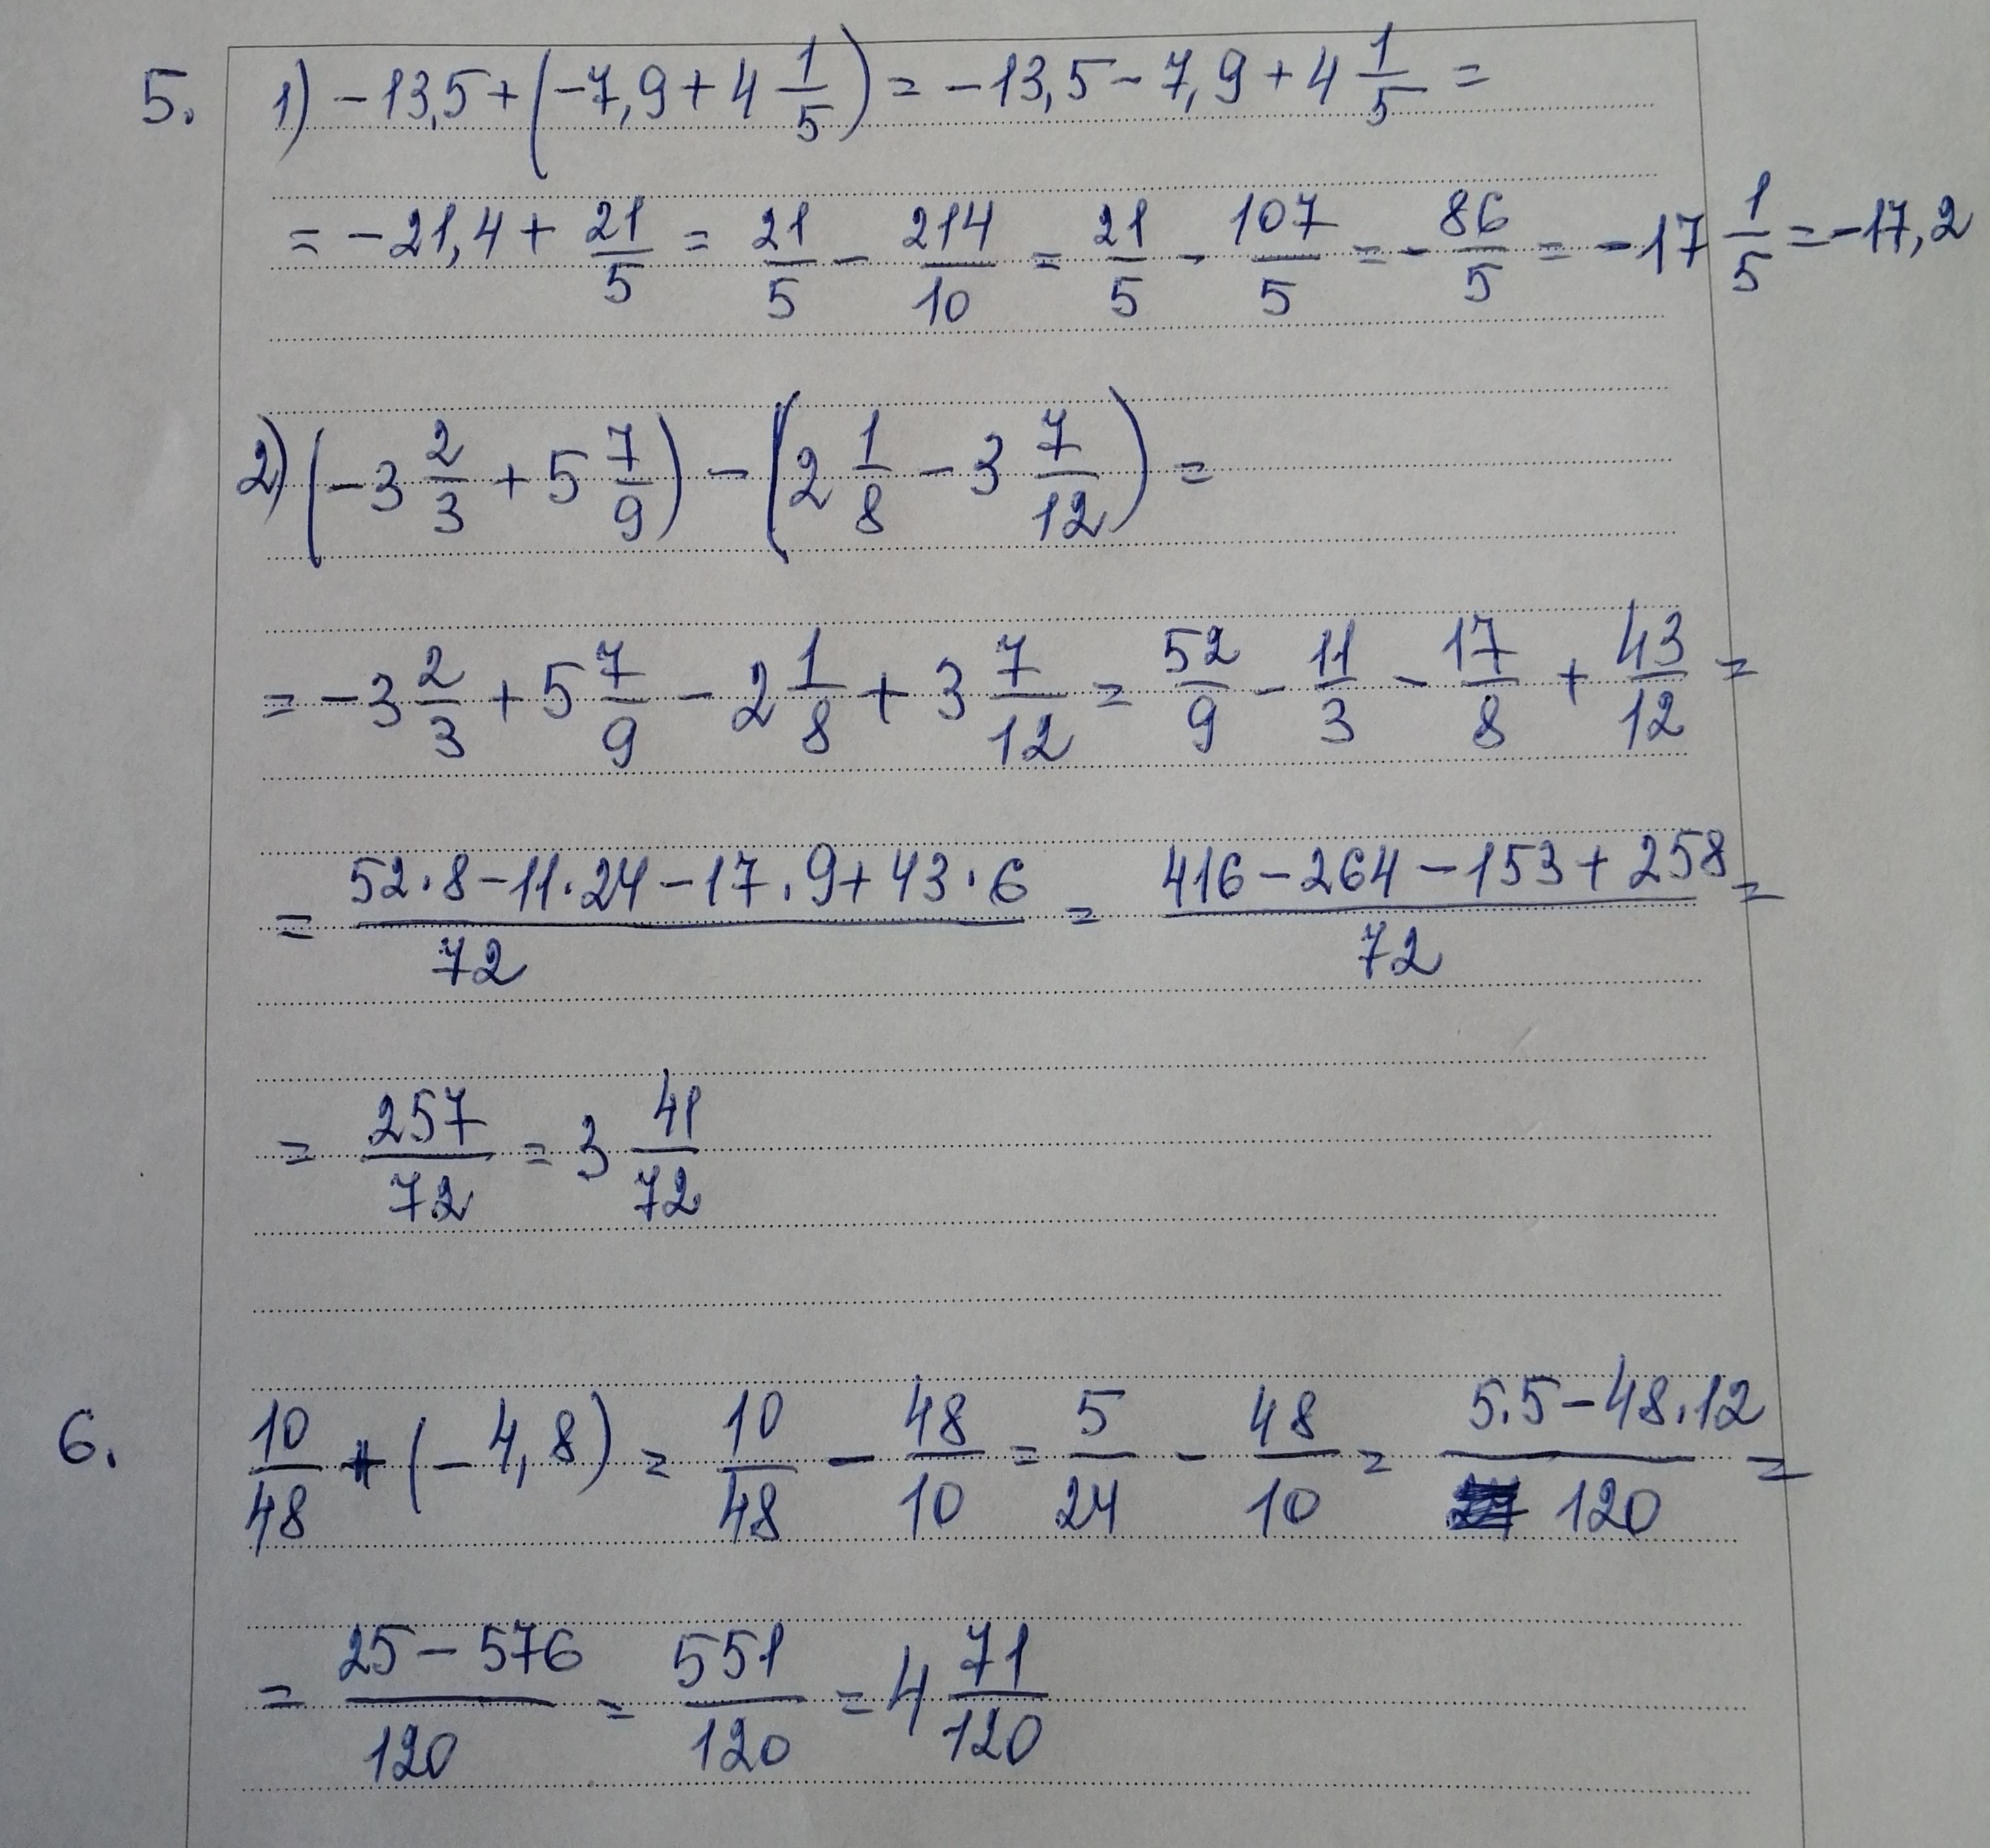 5. 1) -13,5 + (-7,9 + 4 1/5) = -13,5 - 7,9 + 4 1/5 =
= -21,4 + 21/5 = 21/5 - 214/10 = 21/5 - 107/5 = - 86/5 = -17 1/5 = -17,2
2) (-3 2/3 + 5 7/9) - (2 1/8 - 3 7/12) =
= -3 2/3 + 5 7/9 - 2 1/8 + 3 7/12 = 52/9 - 11/3 - 17/8 + 43/12 =
= (52·8-11·24-17·9+43·6)/72 = (416-264-153+258)/72 =
= 257/72 = 3 41/72
6. 10/48 + (-4,8) = 10/48 - 48/10 = 5/24 - 48/10 = (5·5-48·12)/120 =
= (25-576)/120 = 551/120 = 4 71/120